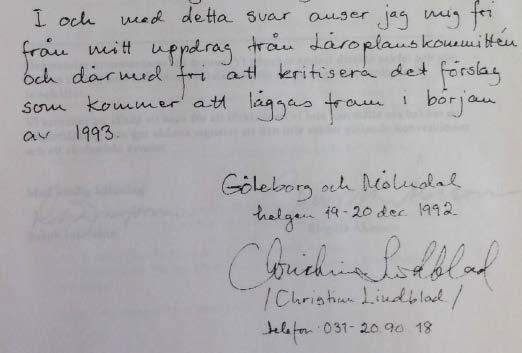 I och med detta svar anser jag mig fri
från mitt uppdrag från Läroplanskommittén
och därmed fri att kritisera det förslag
som kommer att läggas fram i början
av 1993.
Göteborg och Mölndal
helgen 19-20 dec 1992
Christina Lindblad
/Christina Lindblad/
telefon: 031-20.90.18